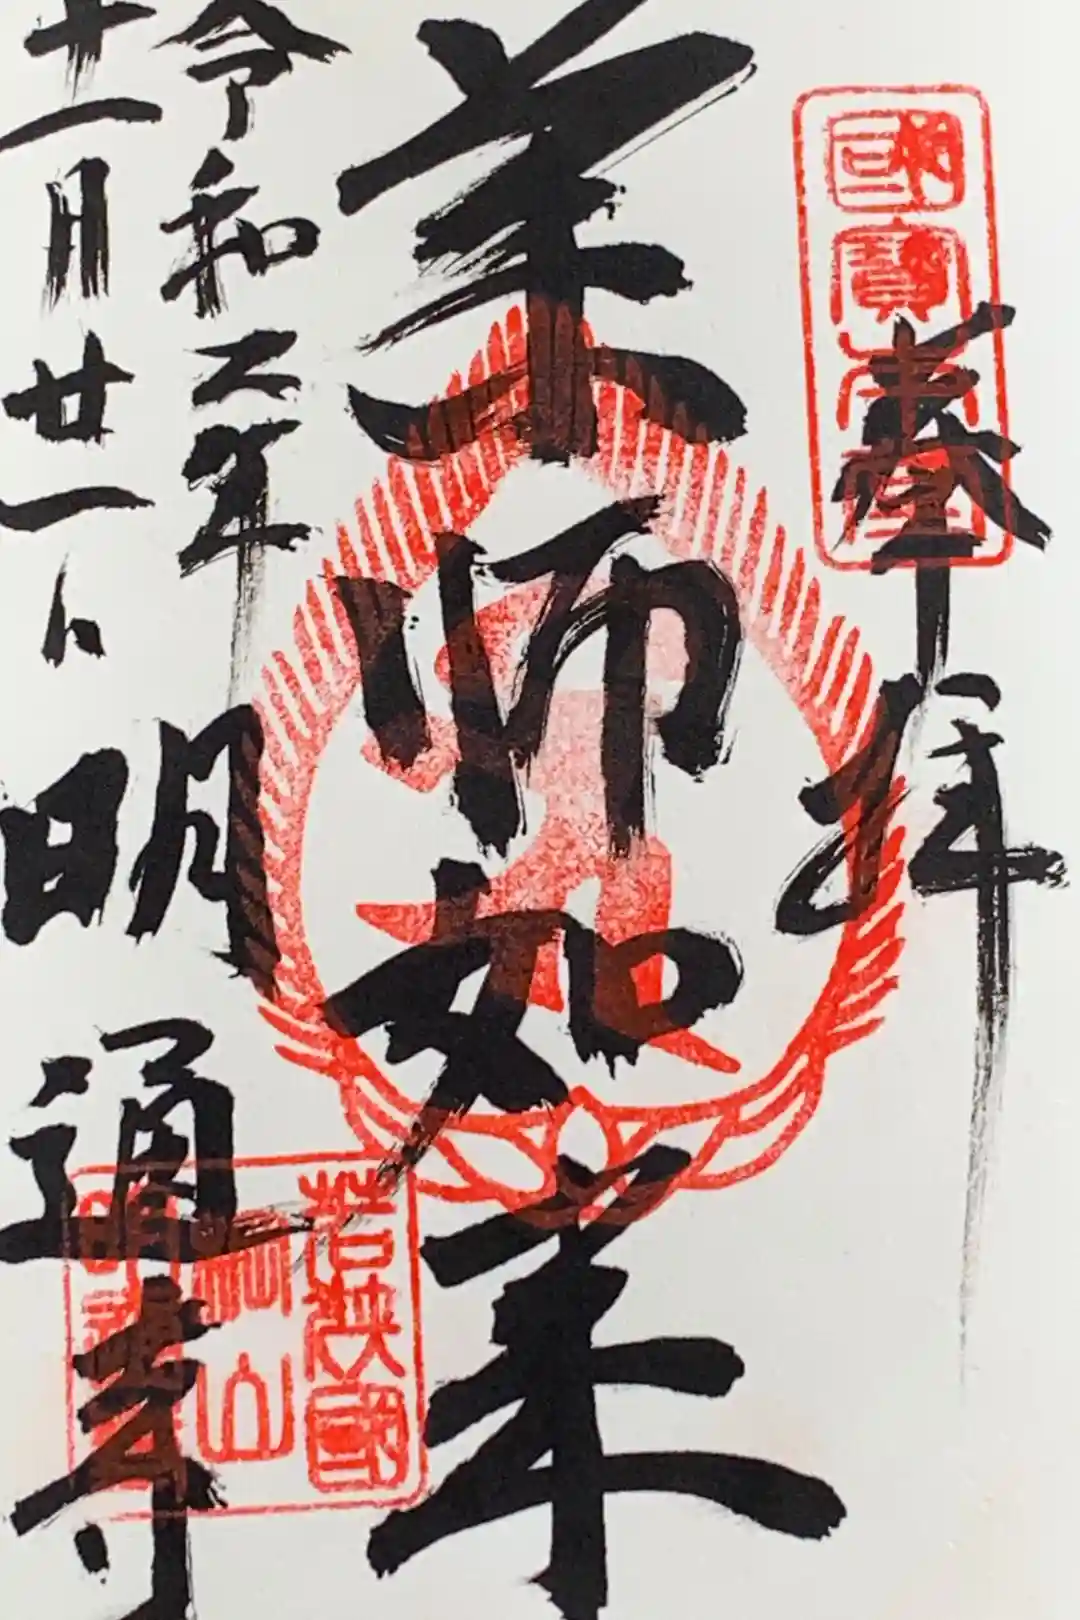 國寶
奉拝
薬師如来
令和二年
十一月廿一日
明通寺
若狹國
棡山
明通寺